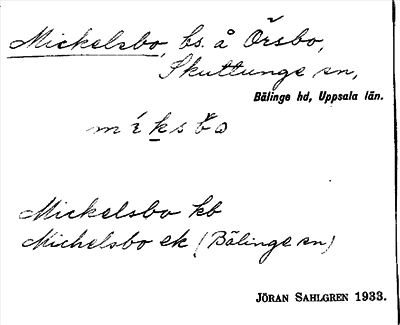 Mickelsbo, bs. å Örsbo,
Skuttunge sn,
Bälinge hd, Uppsala län.
míksbo
Mickelsbo kb
Michelsbo ek (Bälinge sn)
JÖRAN SAHLGREN 1933.